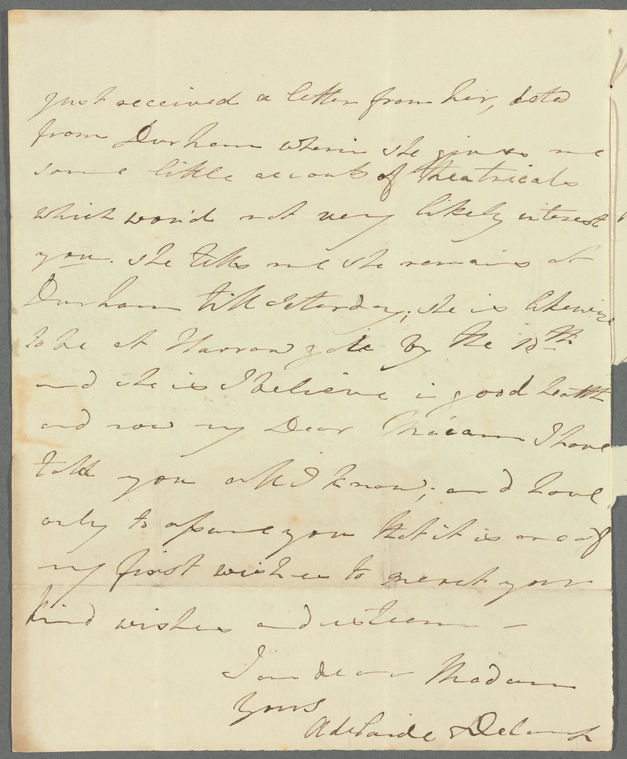 just received a letter from her, dated
from Durham wherein she gives me
some little account of theatricals
which would not very likely interest
you. she tells me she remains at
Durham till Saterday; she is likewise
to be at Harrowgate by the 10th
and she is I believe in good health
and now my Dear Madam I have
told you all I know; and have
only to assure you that it is one of
my first wishes to merit your
kind wishes and esteem —
I am dear Madam
yours
Adelaide